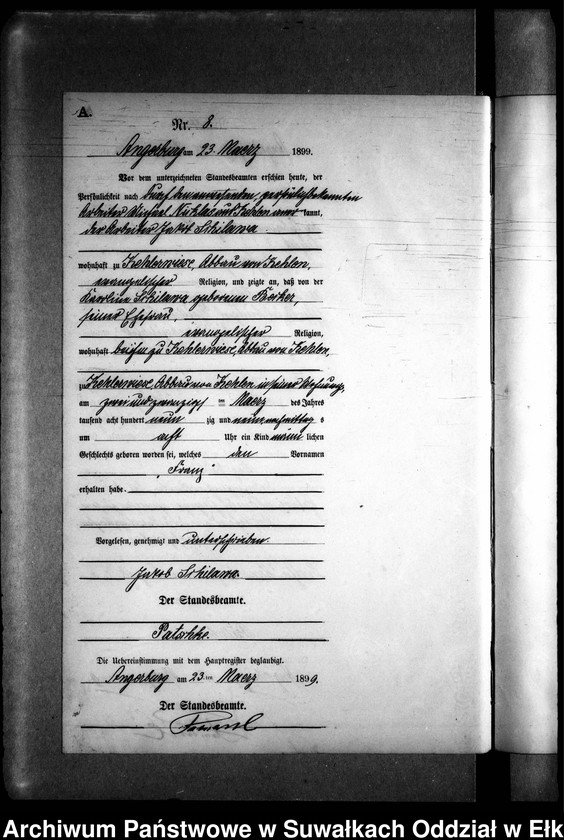 A.
Nr. 8.
Angerburg am 23. Maerz 1899.
Vor dem unterzeichneten Standesbeamten erschien heute, der
Persönlichkeit nach durch den anwesenden, persönlich bekannten
Arbeiter Michael Kuhlas aus Kehlen aner kannt,
der Arbeiter Jakob Schilawa
wohnhaft zu Kehlerwiese, Abbau von Kehlen,
evangelischer Religion, und zeigte an, daß von der
Karoline Schilawa geborenen
seiner Ehefrau,
evangelischer Religion,
wohnhaft bei ihm zu Kehlerwiese, Abbau von Kehlen,
zu Kehlerwiese, Abbau von Kehlen in seiner Wohnung,
am zwei und zwanzigsten Maerz des Jahres
tausend acht hundert neun zig und neun nachmittag s
um acht Uhr ein Kind männ lichen
Geschlechts geboren worden sei, welches den Vornamen
„Franz“
erhalten habe.
Vorgelesen, genehmigt und unterschrieben.
Jakob Schilawa.
Der Standesbeamte.
Patschke.
Die Uebereinstimmung mit dem Hauptregister beglaubigt.
Angerburg am 23. ten Maerz 1899.
Der Standesbeamte.
Archiwum Państwowe w Suwałkach Oddział w Ełk